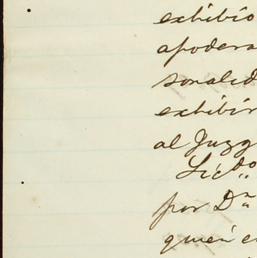 exhibio
apodera
sonalid
exhibir
al Juzg
Licdo
por Dn
quien e